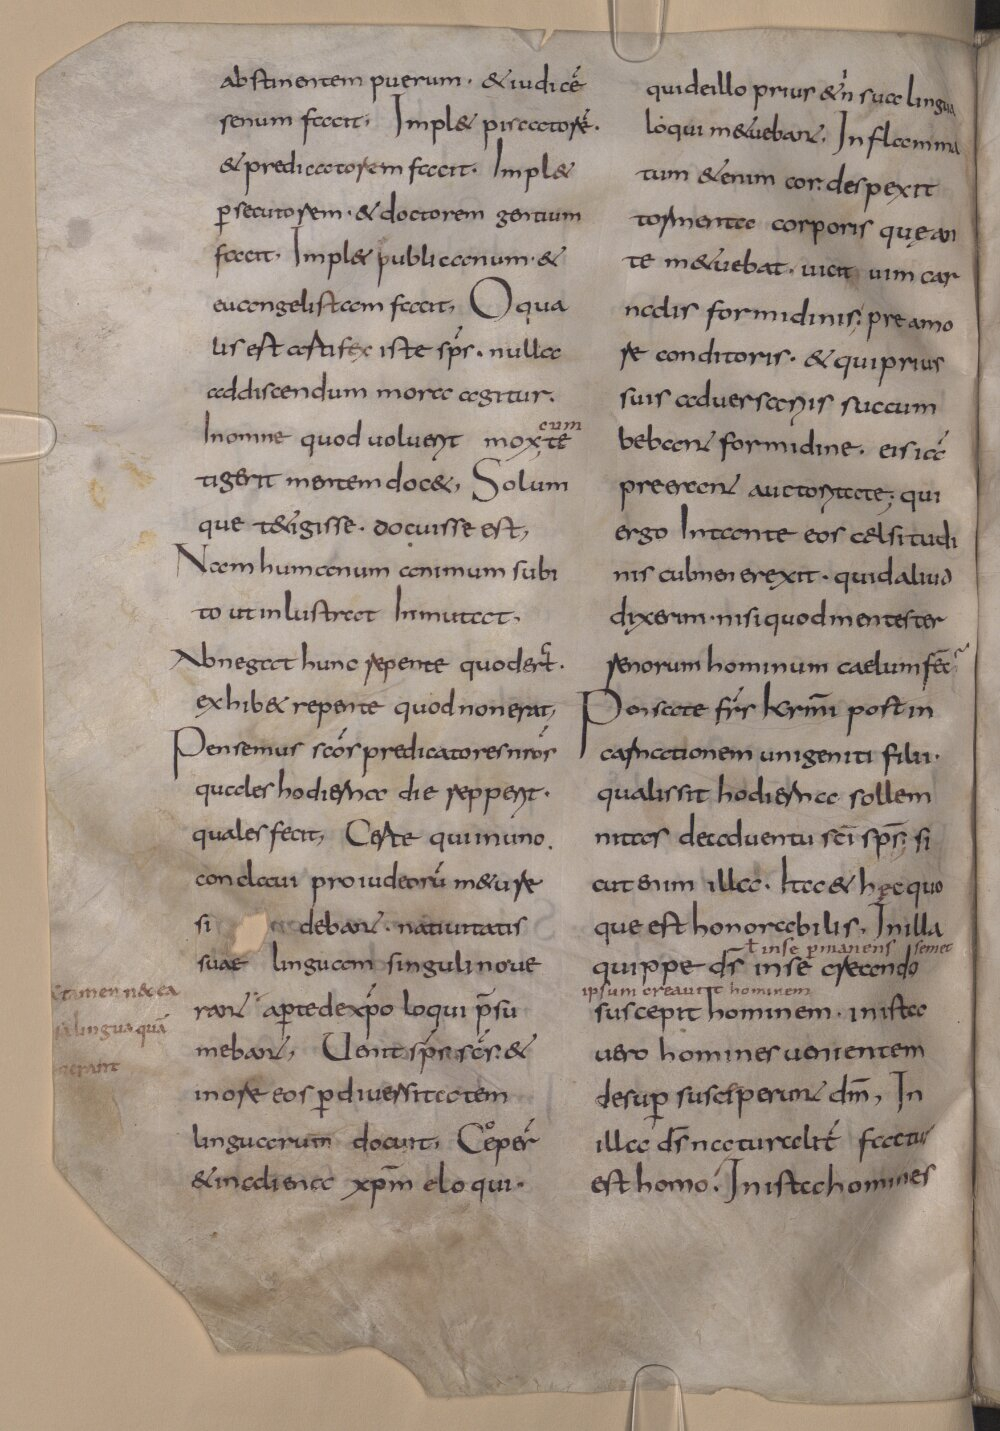 abstinentem puerum · & iudicẽ
senum facit, Impl& piscatorẽ ·
& predicatorem facit · Impl&
p̱secutorem · & doctorem gentium
facit, Impl& publicanum · &
euangelistam facit, O qua
lis est artifex iste sp̄s · nulla
ad discendum mora agitur ·
In omne quod uoluerit mox te
cum
tigerit mentem doc&, Solum
que t&igisse · docuisse est,
Nam humanum animum subi
to ut inlustrat Inmutat,
Abnegat hunc repente quod erat ·
exhib& repente quod non erat,
Pensemus sc̄os predicatores nr̄os
quales hodierna die repperit ·
quales fecit, Certe qui in uno
conclaui pro iudeorū m&u re
si debant · natiuitatis
suae linguam singuli noue
rant aperte de xp̄o loqui p̄su
mebant, Uenit sp̄s sc̄s · &
in ore eos p̱ diuersitatem
linguarum docuit, Coeper̄
& inedienea xp̄m eloqui ·
& tamen nec ea
lingua quā
nerant
qui de illo prius & in sua lingua
loqui m&uebant, Inflamma
tum & enim cor despexit
tormenta corporis que an
te m&uebat · uicit uim car
nalis formidinis; pre amo
re conditoris · & qui prius
suis aduersariis succum
bebant formidine · eis iā
preerant auctoritate; qui
ergo Intante eos celsitudi
nis culmen erexit · quid aliud
dixerim · nisi quod mentes ter
renorum hominum caelum fec̄
Pensate fr̄s kr̄mi post in
carnationem unigeniti filii ·
qualis sit hodierna sollem
nitas de aduentu sc̄i sp̄s; si
cut enim illa · Ita & hęc quo
que est honorabilis, In illa
ł in se p̱manens semet
quippe d̄s in se creando
ipsum creauit hominem
suscepit hominem · in ista
uero homines uenientem
desup̱ susciperunt dm̄, In
illa d̄s naturalit̄ factus
est homo · In ista homines